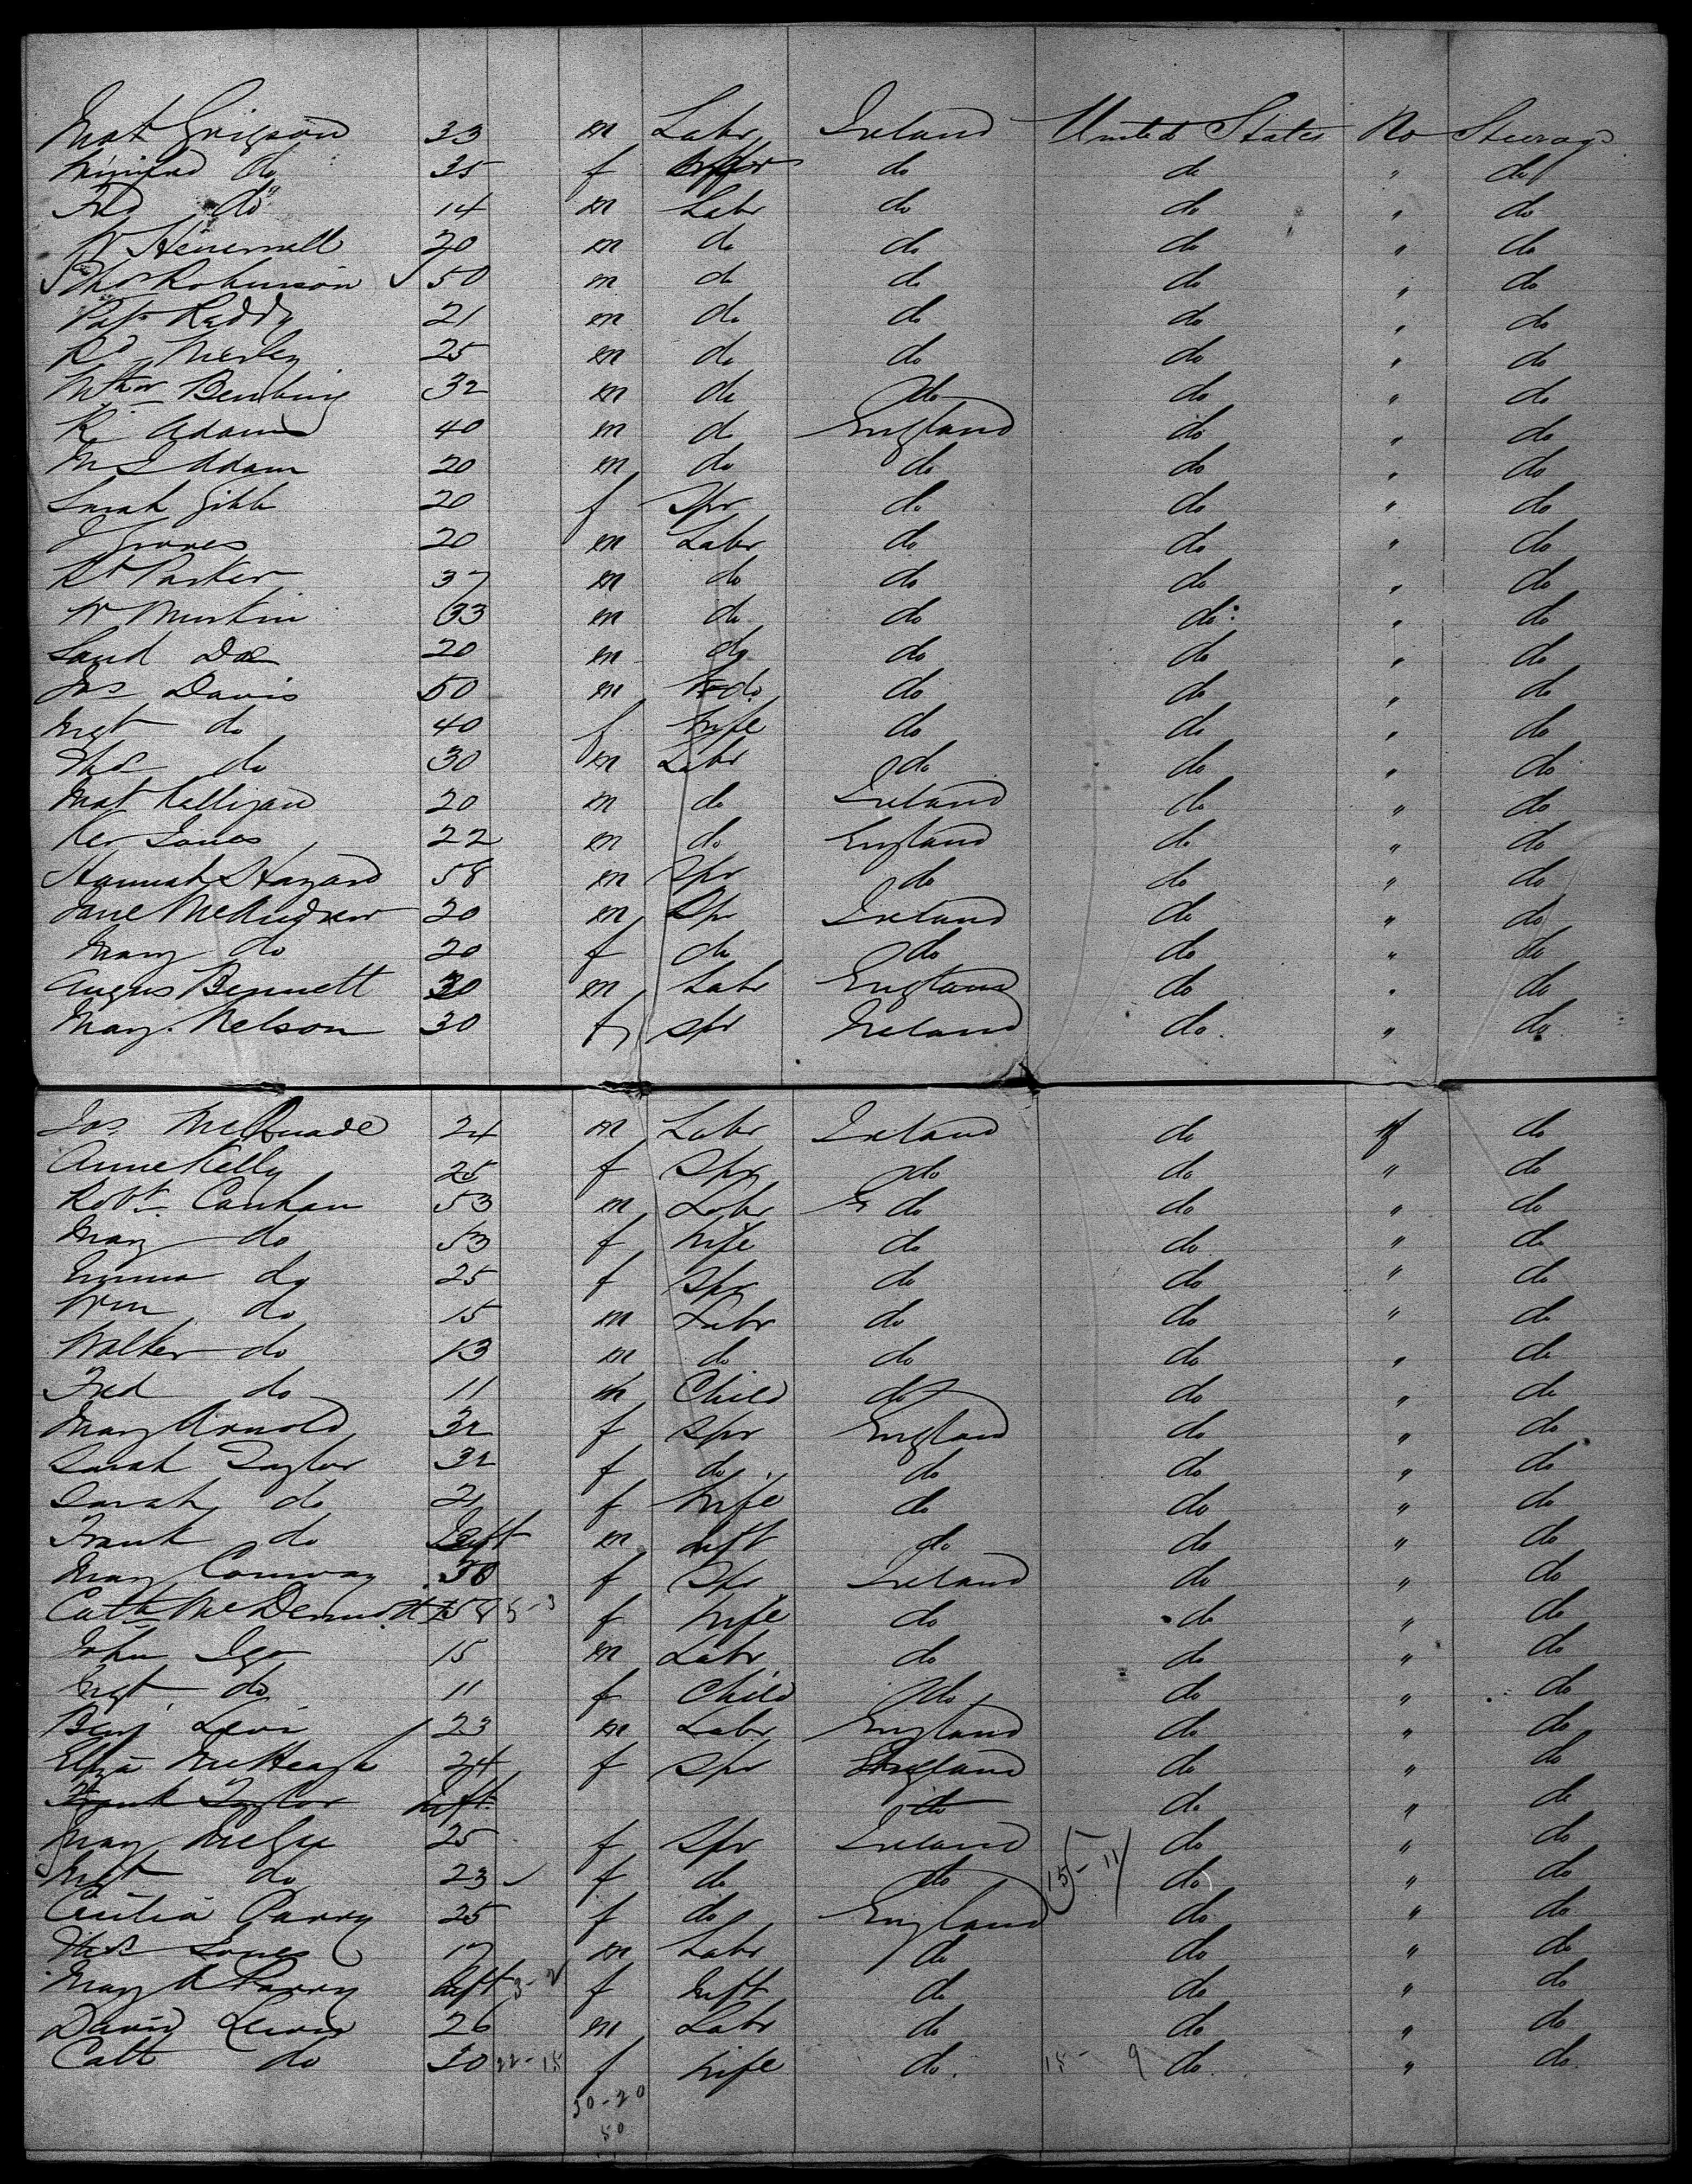 Mat Grigson 33 m Labr Ireland United States No Steerage
do 35 f do do " do
Fred do 14 m Labr do do " do
W 20 m do do do " do
Thos Robinson 50 m do do do " do
Patk Reddy 21 m do do do " do
Rd 25 m do do do " do
32 m do do do " do
R Adams 40 m do England do " do
Adam 20 m do do do " do
Sarah Gibb 20 f Spr do do " do
J Groves 20 m Labr do do " do
Rt Parker 37 m do do do " do
W Murkin 33 m do do do " do
20 m do do do " do
Jas Davis 50 m do do do " do
Mgt do 40 f Wife do do " do
Thos do 30 m Labr do do " do
Mat Culligan 20 m do Ireland do " do
Jones 22 m do England do " do
Hannah Hazard 58 m Spr do do " do
Jane McAndrew 20 m Spr Ireland do " do
Mary do 20 f do do do " do
Angus Bennett 30 m Labr England do " do
Mary Nelson 30 f Spr Ireland do " do
Jas McQuade 24 m Labr Ireland do " do
Anne Kelly 25 f Spr do do " do
Robt Canham 53 m Labr E do do " do
Mary do 53 f Wife do do " do
Emma do 25 f Spr do do " do
Wm do 15 m Labr do do " do
Walter do 13 m do do do " do
Fred do 11 m Child do do " do
Mary Arnold 32 f Spr England do " do
Sarah Taylor 32 f do do do " do
Sarah do 21 f Wife do do " do
Frank do Inft m Inft do do " do
Mary Conway 30 f Spr Ireland do " do
Cath McDermott 58 5-3 f Wife do do " do
John Igo 15 m Labr do do " do
Mgt do 11 f Child do do " do
Benj Levi 23 m Labr England do " do
Eliza McHeagh 24 f Spr England do " do
Frank Taylor Inft do do " do
Mary McGee 25 f Spr Ireland do " do
Mgt do 23 f do do 15-11 do " do
Cecilia Parry 25 f do England do " do
Thos Jones 17 m Labr do do " do
Mary A Parry Inft 3-2 f Inft do do " do
David Lewis 26 m Labr do do " do
Cath do 30 22-15 f Wife do 15-9 do " do
50-20
50